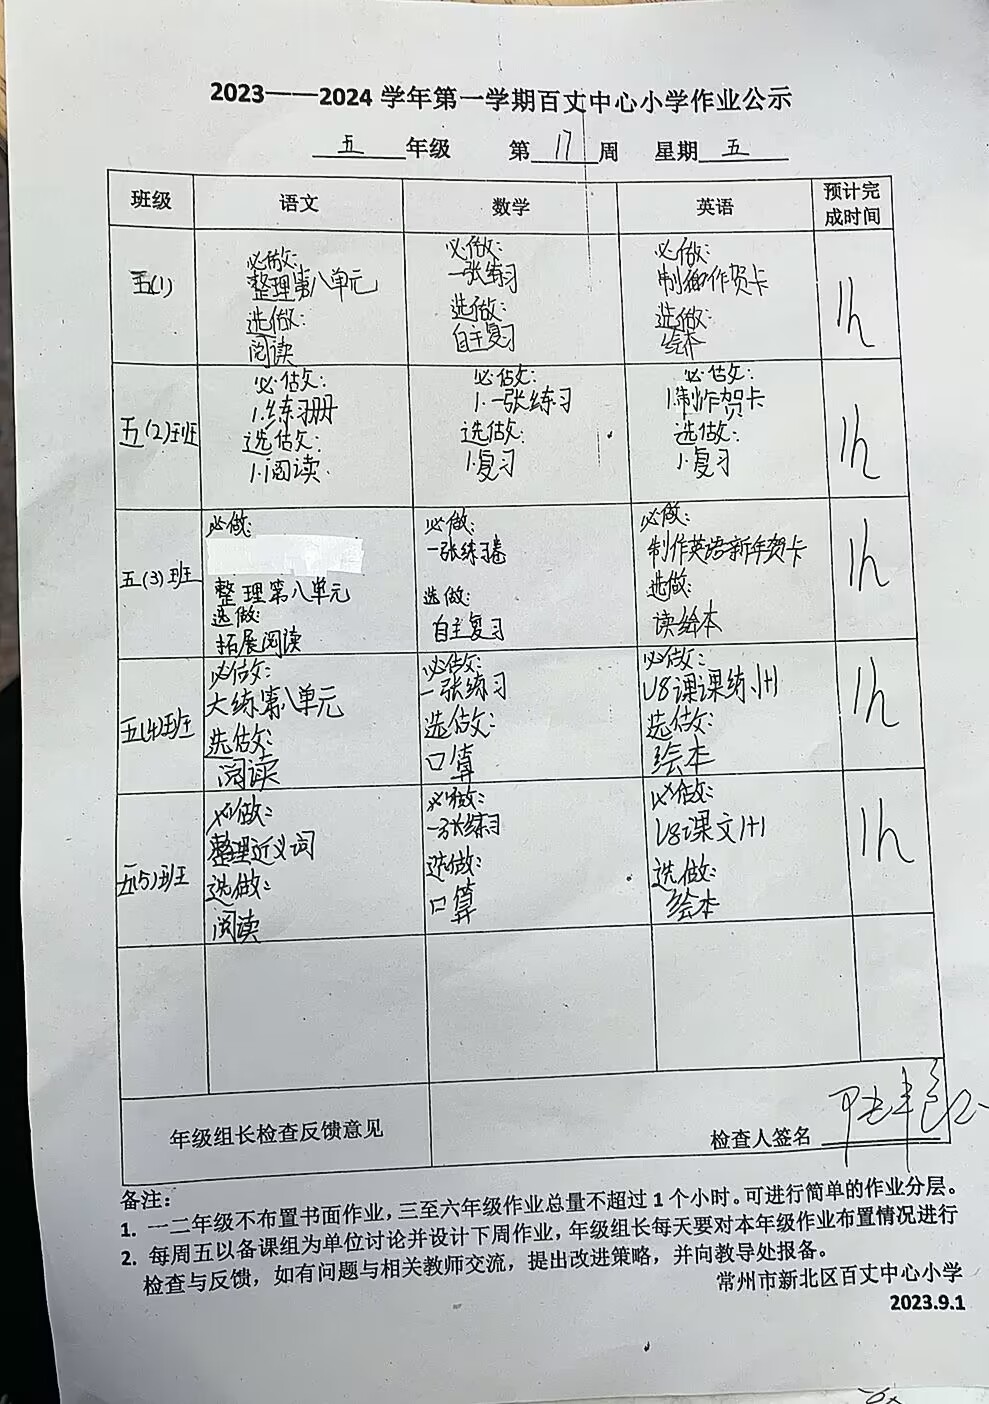 2023——2024 学年第一学期百丈中心小学作业公示
五 年级 第 17 周 星期 五
班级 语文 数学 英语 预计完成时间
五(1)
必做:
整理第八单元
选做:
阅读
必做:
一张练习
选做:
自主复习
必做:
制作贺卡
选做:
绘本
1h
五(2)班
必做:
1.练习册
选做:
1.阅读
必做:
1.一张练习
选做:
1.复习
必做:
1.制作贺卡
选做:
1.复习
1h
五(3)班
必做:
整理第八单元
选做:
拓展阅读
必做:
一张练习卷
选做:
自主复习
必做:
制作英语新年贺卡
选做:
读绘本
1h
五(4)班
必做:
大练第八单元
选做:
阅读
必做:
一张练习
选做:
口算
必做:
U8课课练1+1
选做:
绘本
1h
五(5)班
必做:
整理近义词
选做:
阅读
必做:
一张练习
选做:
口算
必做:
U8课文1+1
选做:
绘本
1h
年级组长检查反馈意见 检查人签名
备注:
1. 一二年级不布置书面作业,三至六年级作业总量不超过 1 个小时。可进行简单的作业分层。
2. 每周五以备课组为单位讨论并设计下周作业,年级组长每天要对本年级作业布置情况进行
检查与反馈,如有问题与相关教师交流,提出改进策略,并向教导处报备。
常州市新北区百丈中心小学
2023.9.1